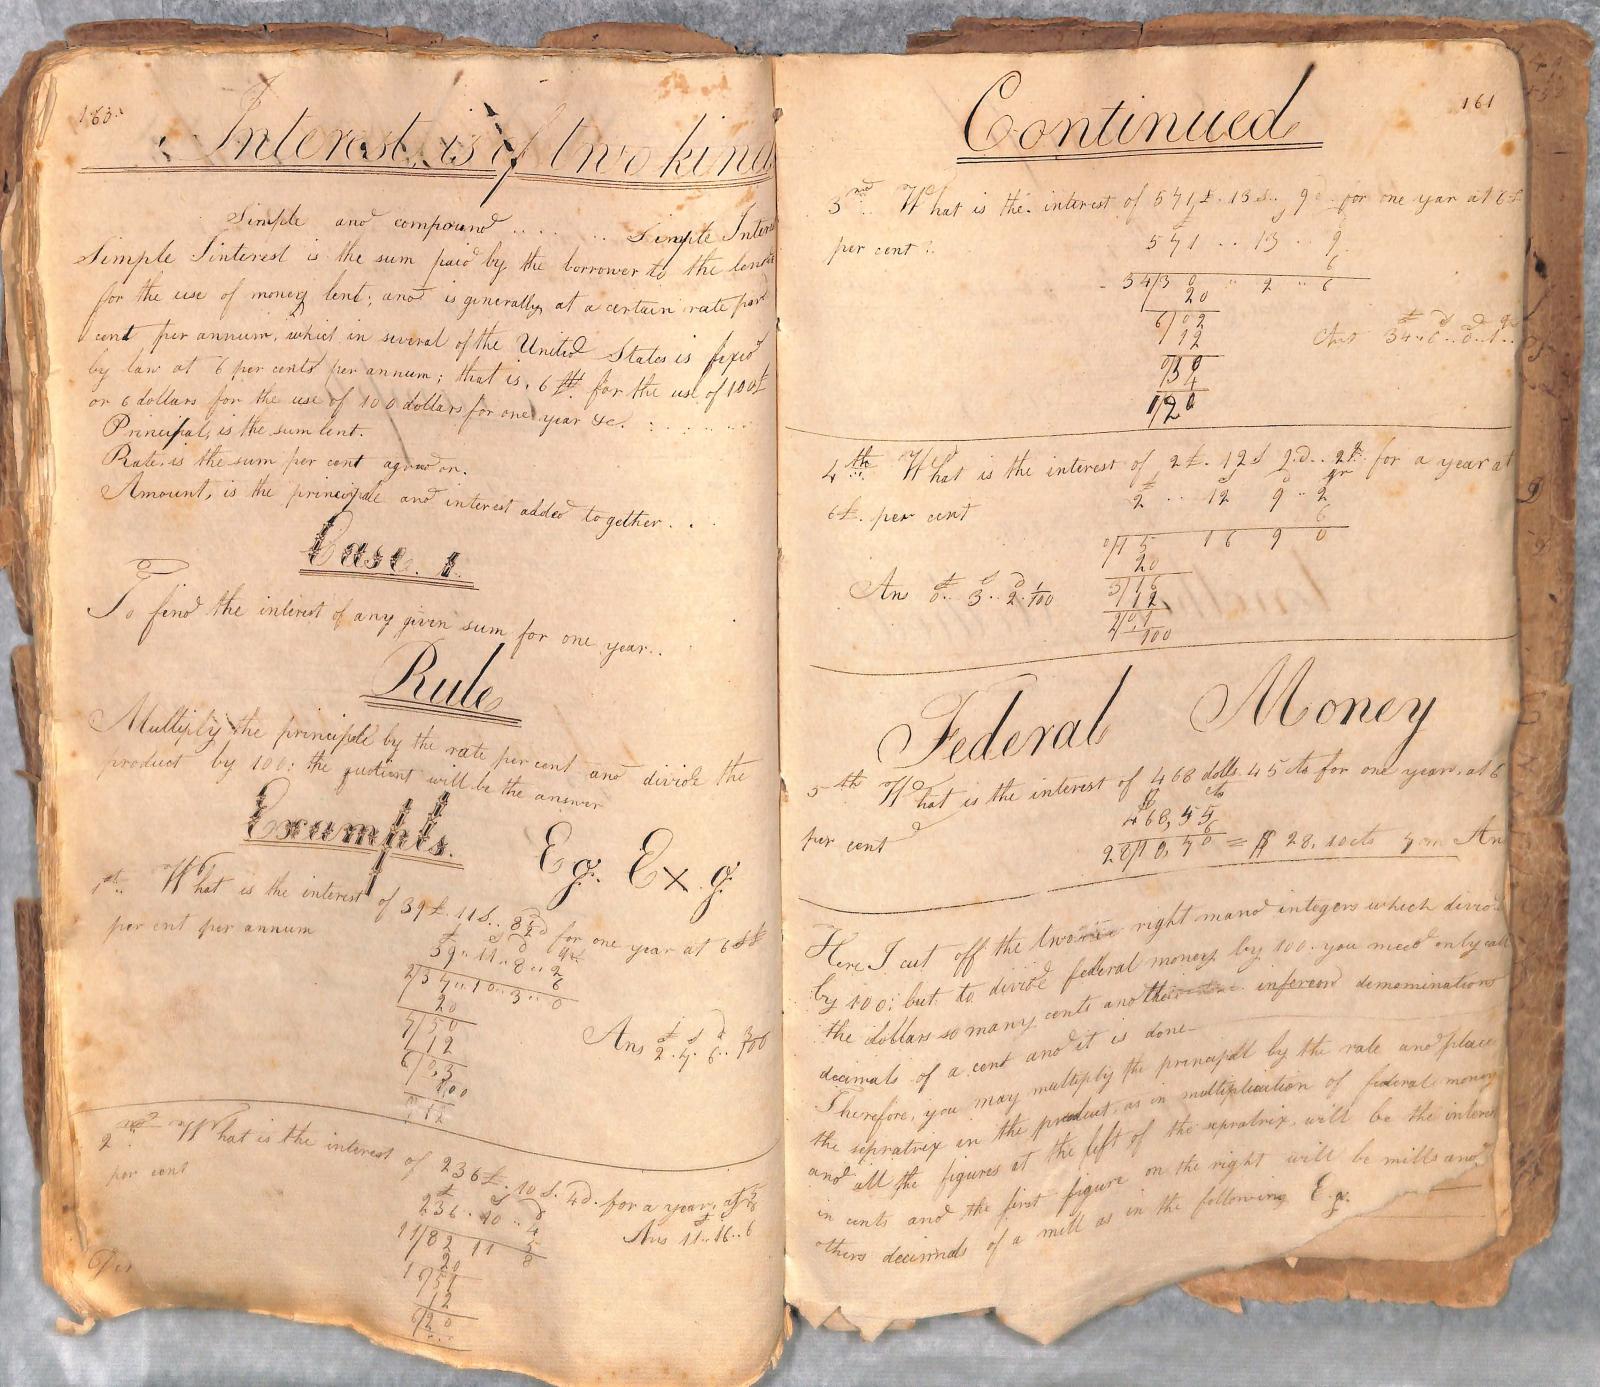 160.
Interest is of two kind
Simple and compound .... .. Simple Inter
Simple Sinterest is the sum paid by the borrower to the lend
for the use of money lent; and is generally at a certain rate par
cent per annum, which in several of the United States is fixed
by law at 6 per cents per annum; that is, 6 £ for the use of 100£
or 6 dollars for the use of 100 dollars for one year &c. : . . . . . .
Principal, is the sum lent.
Rate, is the sum per cent agreed on.
Amount, is the principale and interest added together. . .
Case. 1.
To find the interest of any given sum for one year..
Rule
Multiply the principle by the rate per cent and divide the
product by 100: the quotient will be the answer
Exampls. Eg. Ex. g
1st.. What is the interest of 39£. 11S.. 8½d for one year at 6
per cnt per annum
£ S d qr
39.. 11.. 8.. 2
6
2/37.. 10.. 3.. 0
20
7/50
12
6/03
Ans £ s d
2. 7. 6.. 3/100
2nd What is the interest of 236£. 10S. 4d. for a year, at 5
per cent
£ S d
236.. 10.. 4
5
11/82 11 8
20
Ans 11.. 16.. 6
12
6/20
161
Continued
3nd.. What is the interest of 571£. 13S., 9d for one year at 6£
per cent?
571 .. 13 .. 9
6
34/30 .. 2 .. 6
20
6/02
12
0/30
4
1/20
Ans 34.. 6.. 0.. 1..
4th What is the interest of 2£. 12S 9.d.. 2qr for a year at
6£. per cent
£ d qr
2 .. 12 9 .. 2
6
0/15 16 9 0
20
3/16
12
Ans £ s d
0.. 3.. 2. 1/100
Federal Money
5th What is the interest of 468 dolls. 45 cts for one year, at 6
per cent
$ cts
468, 45
6
28/10, 70 = $ 28, 10cts 7m An
Here I cut off the two right mand integers which divid
by 100: but to divide federal money by 100. you need only call
the dollars so many cents and the inferior demominations
decimals of a cent and it is done-
Therefore, you may multiply the principall by the rate and place
the sepratrix in the product, as in multiplication of federal money
and all the figures at the left of the sepratrix, will be the interes
in cents and the first figure on the right will be mills and
others decimals of a mill as in the following E.g.